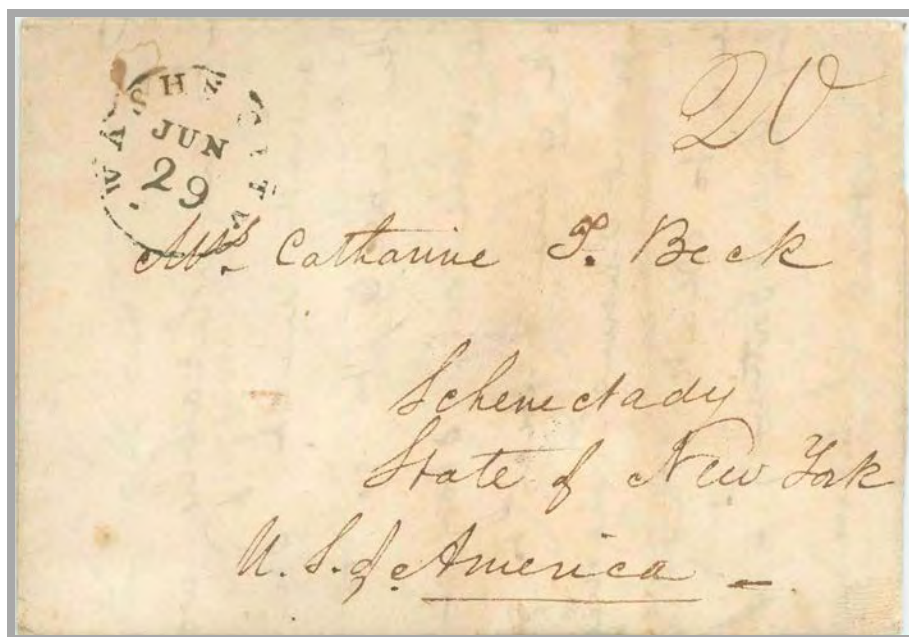 WASHN CITY
JUN
29
20
Mrs. Catharine F. Beck
Schenectady
State of New York
U. S. of America